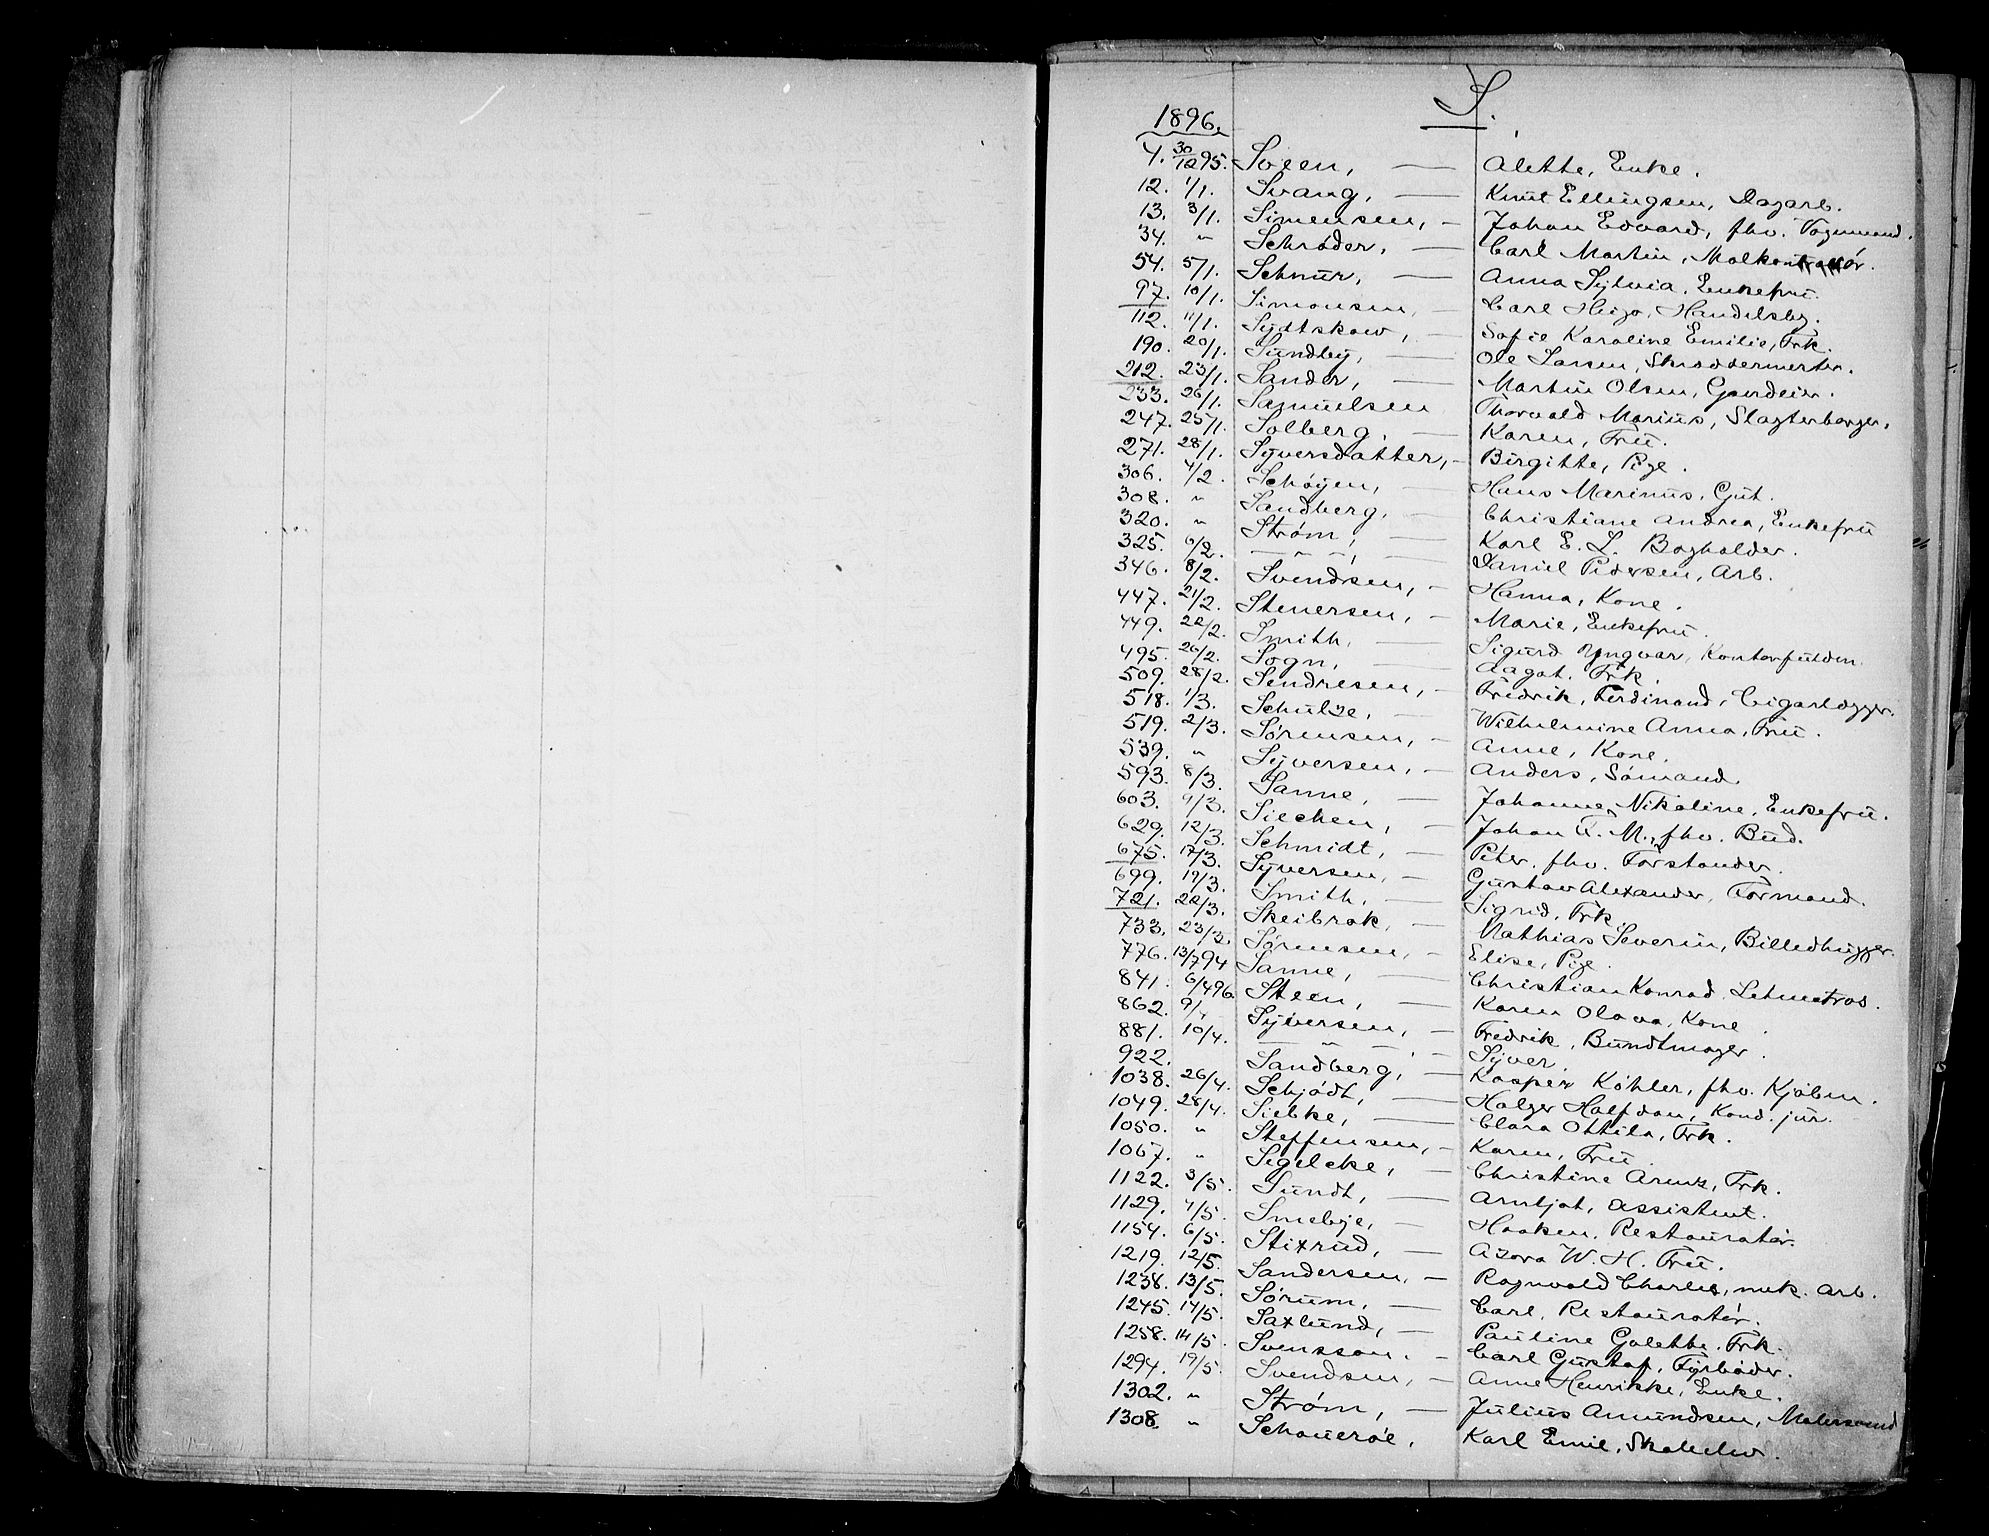 S.
1896.
4. 30/12 95. Sveen, — Alette, Enke.
12. 1/1. Svang, — Knut Ellingsen, Dagarb.
13. 3/1. Simensen, — Johan Edvard, fhv. Vognmand.
34. " Schrøder, — Carl Martin, Malkontrollør.
54. 5/1. Schnur, — Anna Sylvia, Enkefru.
97. 10/1. Simonsen, — Carl Hugo, Handelsbg.
112. 11/1. Sydtskow, — Sofie Karoline Emilie, Frk.
190. 20/1. Sundby, — Ole Larsen, Skræddermester.
212. 23/1. Sander, — Martin Olsen, Gaardeier.
233. 26/1. Samuelsen Thorvald Marius, Slagterborger.
247. 25/1. Solberg, — Karen, Fru.
271. 28/1. Syversdatter, — Birgitte, Pige.
306. 4/2. Schøyen, — Hans Marinus, Gut.
308. " Sandberg, — Christiane Andrea, Enkefru
320. " Strøm, — Karl E. L. Bogholder.
325. 6/2. — " —, — Daniel Pedersen, Arb.
346. 8/2. Svendsen, — Hanna, Kone.
447. 21/2. Stenersen, — Marie, Enkefru.
449. 22/2. Smith, — Sigurd Yngvar, Kontorfuldm.
495. 26/2. Sogn, — Aagot, Frk.
509. 28/2. Sendresen, — Fredrik, Ferdinand, Cigarlægger.
518. 1/3. Schulze, — Wilhelmine Anna, Fru.
519. 2/3. Sørensen, — Anne, Kone.
539. " Syversen, — Anders, Sømand
593. 8/3. Sanne, — Johanne Nikoline, Enkefru.
603. 9/3. Siechen, — Johan F. M., fhv. Bud.
629. 12/3. Schmidt, — Peter, fhv. Forstander.
675. 17/3. Syversen, — Gustav Alexander, Formand.
699. 19/3. Smith, — Sigrid, Frk.
721. 22/3. Skeibrok, — Mathias Severin, Billedhugger.
733. 23/3. Sørensen, — Elise, Pige.
776. 13/7 94 Sanne, — Christian Konrad, Letmatros.
841. 6/4 96. Steen, — Karen Olava, Kone.
862. 9/4 Syversen, — Fredrik, Bundtmager.
881. 10/4. — " —, — Syver.
922. Sandberg, — Kasper Köhler, fhv. Kjøbm.
1038. 26/4. Schjødt, — Holger Halfdan, Kand. jur.
1049. 28/4. Siebke, — Clara Ottila, Frk.
1050. " Steffensen, — Karen, Fru.
1067. " Segelcke, — Christine Arentz, Frk.
1122. 3/5. Sundt, — Arnljot, Assistent.
1129. 4/5. Smebye, — Haaken, Restauratør.
1154. 6/5. Stixrud, — Azora W. H. Fru.
1219. 12/5. Sandersen, — Ragnvald Charles, mek. Arb.
1238. 13/5. Sørum, — Carl, Restauratør.
1245. 14/5. Saxlund, — Pauline Galethe, Frk.
1258. 14/5. Svensson, — Carl Gustaf, Fyrbøder.
1294. 19/5. Svendsen, — Anne Henrikke, Enke.
1302. " Strøm, — Julius Amundsen, Malersvend
1308. " Schouerøe, Karl Emil, Skoleelev.